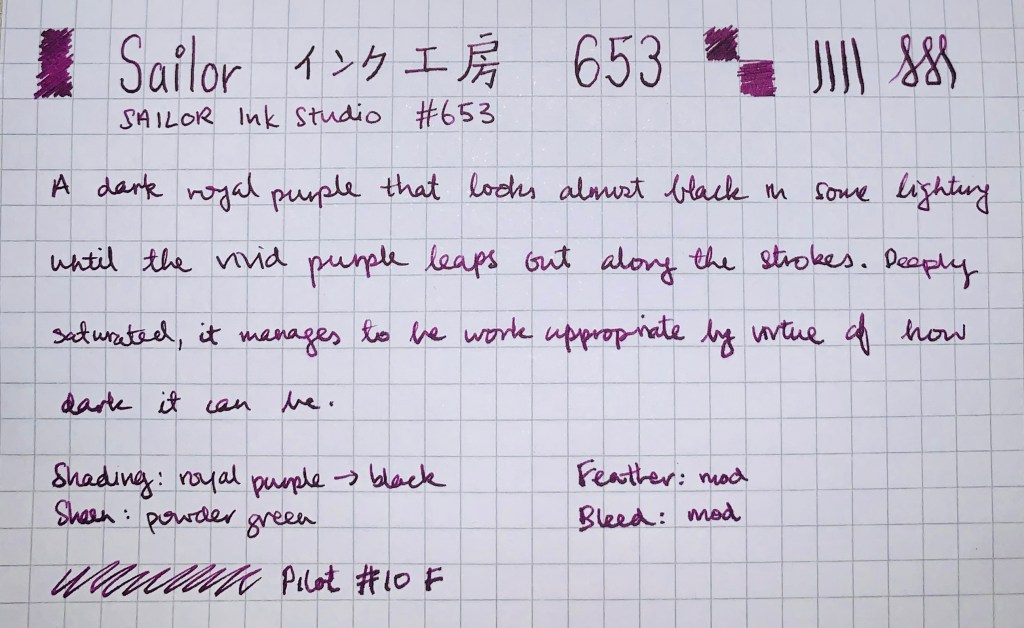 Sailor インク工房 653
SAILOR Ink Studio #653
A dark royal purple that looks almost black in some lighting
until the vivid purple leaps out along the strokes. Deeply
saturated, it manages to be work appropriate by virtue of how
dark it can be.
Shading: royal purple → black
Sheen: powder green
Feather: mod
Bleed: mod
Pilot #10 F